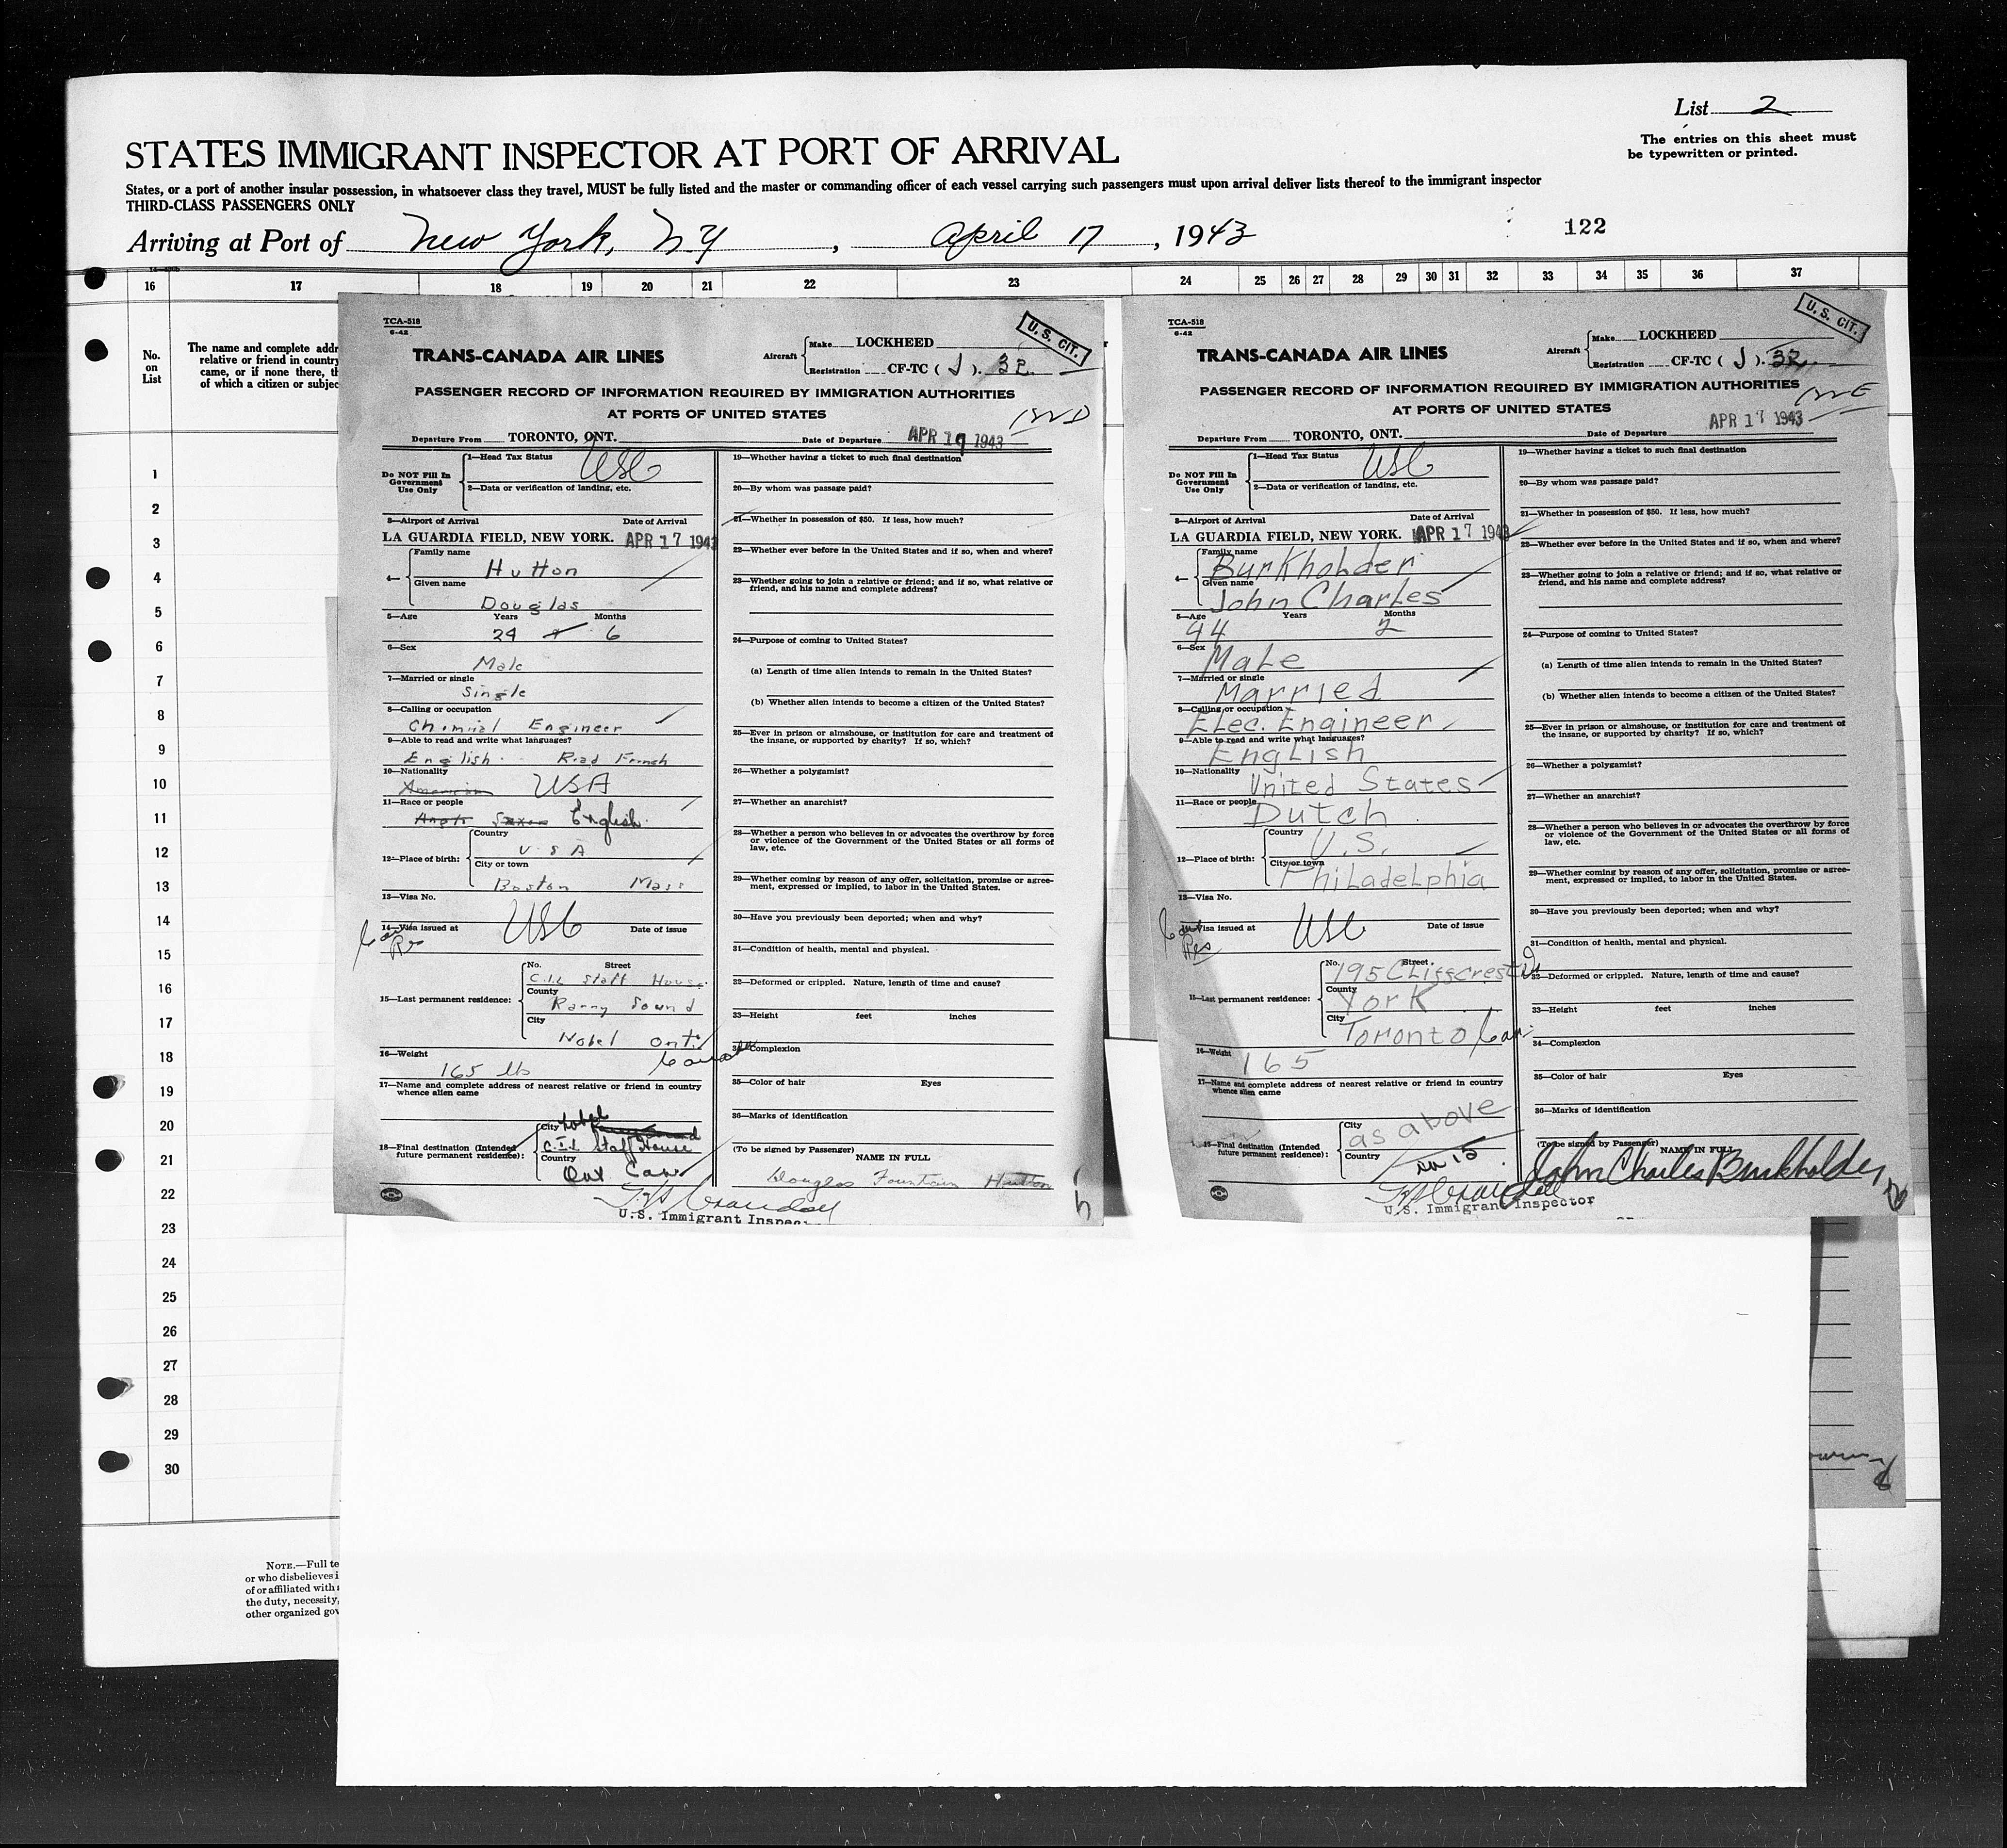 List 2
The entries on this sheet must
be typewritten or printed.
STATES IMMIGRANT INSPECTOR AT PORT OF ARRIVAL
States, or a port of another insular possession, in whatsoever class they travel, MUST be fully listed and the master or commanding officer of each vessel carrying such passengers must upon arrival deliver lists thereof to the immigrant inspector
THIRD-CLASS PASSENGERS ONLY
Arriving at Port of New York, NY, April 17, 1943
122
16 17 18 19 20 21 22 23 24 25 26 27 28 29 30 31 32 33 34 35 36 37
No.
on
List
The name and complete addr
relative or friend in country
came, or if none there, th
of which a citizen or subjec
1
2
3
4
5
6
7
8
9
10
11
12
13
14
15
16
17
18
19
20
21
22
23
24
25
26
27
28
29
30
NOTE.—Full te
or who disbelieves i
of or affiliated with
the duty, necessity,
other organized gov
TCA-518
6-42
U. S. CIT.
TRANS-CANADA AIR LINES
Aircraft
Make LOCKHEED
Registration CF-TC ( J ). 32
PASSENGER RECORD OF INFORMATION REQUIRED BY IMMIGRATION AUTHORITIES
AT PORTS OF UNITED STATES
Departure From TORONTO, ONT. Date of Departure APR 17 1943
Do NOT Fill In
Government
Use Only
1—Head Tax Status USC
2—Data or verification of landing, etc.
3—Airport of Arrival Date of Arrival
LA GUARDIA FIELD, NEW YORK. APR 17 1943
4—
Family name
Hutton
Given name
Douglas
5—Age Years Months
24 6
6—Sex
Male
7—Married or single
Single
8—Calling or occupation
Chemical Engineer
9—Able to read and write what languages?
English Read French
10—Nationality
American USA
11—Race or people
Anglo Saxon English
12—Place of birth:
Country
U S A
City or town
Boston Mass
13—Visa No.
14—Visa issued at USC Date of issue
Can
Res
15—Last permanent residence:
No. Street
C.I.L Staff House
County
Parry Sound
City
Nobel Ont.
Canada
16—Weight
165 lb
17—Name and complete address of nearest relative or friend in country
whence alien came
18—Final destination (Intended
future permanent residence):
City Nobel
C.I.L Staff House
Country
Ont Can
19—Whether having a ticket to such final destination
20—By whom was passage paid?
21—Whether in possession of $50. If less, how much?
22—Whether ever before in the United States and if so, when and where?
23—Whether going to join a relative or friend; and if so, what relative or
friend, and his name and complete address?
24—Purpose of coming to United States?
(a) Length of time alien intends to remain in the United States?
(b) Whether alien intends to become a citizen of the United States?
25—Ever in prison or almshouse, or institution for care and treatment of
the insane, or supported by charity? If so, which?
26—Whether a polygamist?
27—Whether an anarchist?
28—Whether a person who believes in or advocates the overthrow by force
or violence of the Government of the United States or all forms of
law, etc.
29—Whether coming by reason of any offer, solicitation, promise or agree-
ment, expressed or implied, to labor in the United States.
30—Have you previously been deported; when and why?
31—Condition of health, mental and physical.
32—Deformed or crippled. Nature, length of time and cause?
33—Height feet inches
34—Complexion
35—Color of hair Eyes
36—Marks of identification
(To be signed by Passenger)
NAME IN FULL
Douglas Fountain Hutton
U.S. Immigrant Inspec
TCA-518
6-42
U. S. CIT.
TRANS-CANADA AIR LINES
Aircraft
Make LOCKHEED
Registration CF-TC ( J ). 32
PASSENGER RECORD OF INFORMATION REQUIRED BY IMMIGRATION AUTHORITIES
AT PORTS OF UNITED STATES
Departure From TORONTO, ONT. Date of Departure APR 17 1943
Do NOT Fill In
Government
Use Only
1—Head Tax Status USC
2—Data or verification of landing, etc.
3—Airport of Arrival Date of Arrival
LA GUARDIA FIELD, NEW YORK. APR 17 1943
4—
Family name
Burkholder
Given name
John Charles
5—Age Years Months
44 2
6—Sex
Male
7—Married or single
Married
8—Calling or occupation
Elec. Engineer
9—Able to read and write what languages?
English
10—Nationality
United States
11—Race or people
Dutch
12—Place of birth:
Country
U.S.
City or town
Philadelphia
13—Visa No.
14—Visa issued at USC Date of issue
Can
Res
15—Last permanent residence:
No. Street
195 Cliffcrest Dr
County
York
City
Toronto Can.
16—Weight
165
17—Name and complete address of nearest relative or friend in country
whence alien came
18—Final destination (Intended
future permanent residence):
City
as above
Country
in 15
19—Whether having a ticket to such final destination
20—By whom was passage paid?
21—Whether in possession of $50. If less, how much?
22—Whether ever before in the United States and if so, when and where?
23—Whether going to join a relative or friend; and if so, what relative or
friend, and his name and complete address?
24—Purpose of coming to United States?
(a) Length of time alien intends to remain in the United States?
(b) Whether alien intends to become a citizen of the United States?
25—Ever in prison or almshouse, or institution for care and treatment of
the insane, or supported by charity? If so, which?
26—Whether a polygamist?
27—Whether an anarchist?
28—Whether a person who believes in or advocates the overthrow by force
or violence of the Government of the United States or all forms of
law, etc.
29—Whether coming by reason of any offer, solicitation, promise or agree-
ment, expressed or implied, to labor in the United States.
30—Have you previously been deported; when and why?
31—Condition of health, mental and physical.
32—Deformed or crippled. Nature, length of time and cause?
33—Height feet inches
34—Complexion
35—Color of hair Eyes
36—Marks of identification
(To be signed by Passenger)
NAME IN FULL
John Charles Burkholder
U.S. Immigrant Inspector